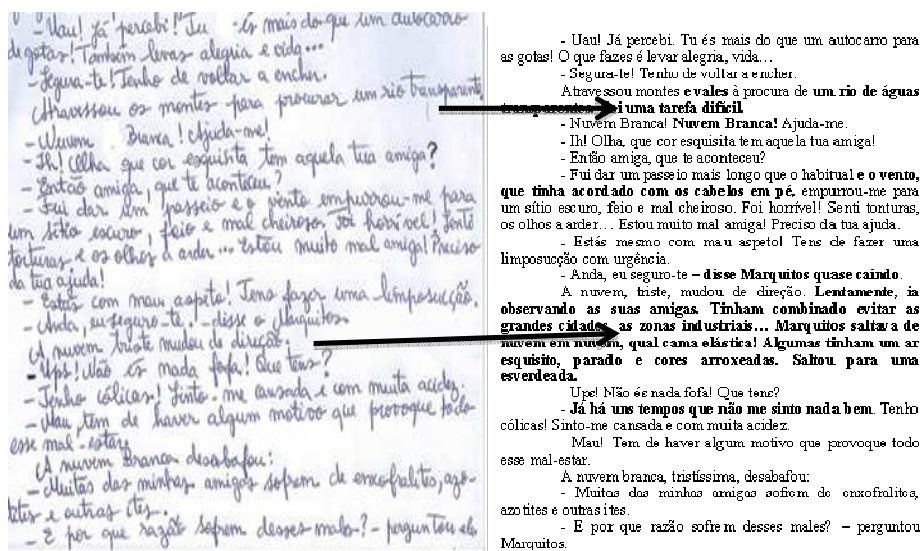 - Uau! Já percebi! Tu és mais do que um autocarro
de gotas! Também levas alegria e vida...
- Segura-te! Tenho de voltar a encher.
Atravessou os montes para procurar um rio transparente.
- Nuvem Branca! Ajuda-me!
- Ih! Olha que cor esquisita tem aquela tua amiga?
- Então amiga, que te aconteceu?
- Fui dar um passeio e o vento empurrou-me para
um sítio escuro, feio e mal cheiroso, foi horrível! Senti
tonturas e os olhos a arder... Estou muito mal amiga! Preciso
da tua ajuda!
- Estás com mau aspeto! Tens fazer uma limposucção.
- Anda, eu seguro-te. - disse o Marquitos.
A nuvem triste mudou de direção.
- Ups! Não és nada fofa! Que tens?
- Tenho cólicas! Sinto-me cansada e com muita acidez.
- Mau, tem de haver algum motivo que provoque todo
esse mal-estar.
A nuvem Branca desabafou:
- Muitas das minhas amigas sofrem de enxofralites, azo-
tites e outras ites.
- E por que razão sofrem desses males? - perguntou ele
- Uau! Já percebi. Tu és mais do que um autocarro para
as gotas! O que fazes é levar alegria, vida...
- Segura-te! Tenho de voltar a encher.
Atravessou montes e vales à procura de um rio de águas
transparentes. Foi uma tarefa difícil.
- Nuvem Branca! Nuvem Branca! Ajuda-me.
- Ih! Olha, que cor esquisita tem aquela tua amiga!
- Então amiga, que te aconteceu?
- Fui dar um passeio mais longo que o habitual e o vento,
que tinha acordado com os cabelos em pé, empurrou-me para
um sítio escuro, feio e mal cheiroso. Foi horrível! Senti tonturas,
os olhos a arder... Estou muito mal amiga! Preciso da tua ajuda.
- Estás mesmo com mau aspeto! Tens de fazer uma
limposucção com urgência.
- Anda, eu seguro-te – disse Marquitos quase caindo.
A nuvem, triste, mudou de direção. Lentamente, ia
observando as suas amigas. Tinham combinado evitar as
grandes cidades, as zonas industriais... Marquitos saltava de
nuvem em nuvem, qual cama elástica! Algumas tinham um ar
esquisito, parado e cores arroxeadas. Saltou para uma
esverdeada.
Ups! Não és nada fofa! Que tens?
- Já há uns tempos que não me sinto nada bem. Tenho
cólicas! Sinto-me cansada e com muita acidez.
Mau! Tem de haver algum motivo que provoque todo
esse mal-estar.
A nuvem branca, tristíssima, desabafou:
- Muitas das minhas amigas sofrem de enxofralites,
azotites e outras ites.
- E por que razão sofrem desses males? – perguntou
Marquitos.